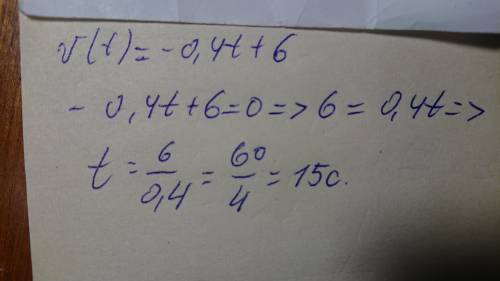 v(t)=-0,4t+6
- 0,4t+6=0=>6=0,4t=>
t=6/0,4=60/4=15с.